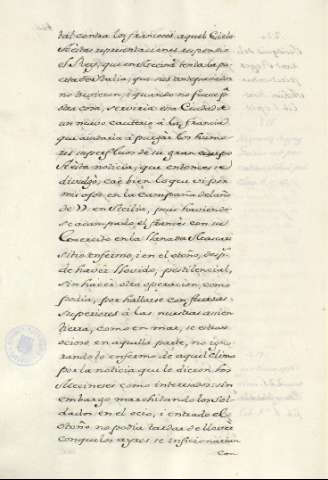 tal contra los franceses, aquel Cielo
estas representaciones suspendio
el Rey, que en
de Italia, que
no tuviesen, i quando no fuese por
otra cosa, serviria esta Ciudad de
un nuevo cauterio à la francia
que aiudaria à purgar los humo
res superfluos de su gran cuerpo
esta noticia, que entonces se
divulgò, cae bien lo que vi por
mis ojos en la campaña del año
de 77 en Sicilia, pues haviendo
se acampado el francès con su
Exercito en la llanada de
sitio enfermo, i en el otoño, desp.
de haver llovido, pestilencial,
sin hacer otra operacion, como
podia, por hallarse con fuerzas
superiores à las nuestras asi en
tierra, como en mar, se estubo
ocioso en aquella parte, no igno
rando lo enfermo de aquel clima
por la noticia que le dieron los
Mecineses como interesados, sin
embargo marchitando los sol
dados en el ocio, i entrado el
otoño no podia tardar de llover
con que los ayres se inficionarian
con